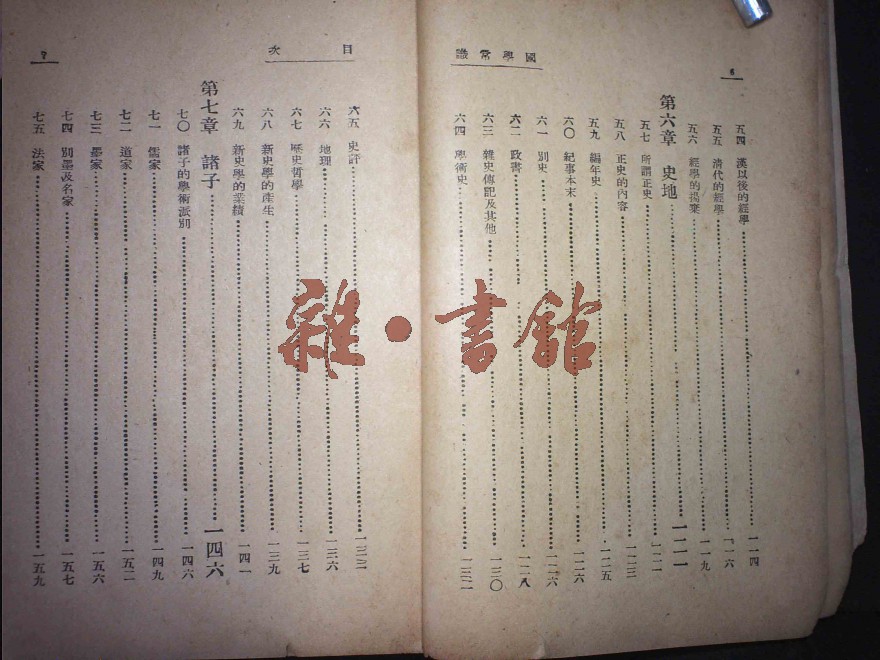 國學常識
6
五四 漢以後的經學……一一四
五五 清代的經學……一一六
五六 經學的揚棄……一一九
第六章 史地……一二一
五七 所謂正史……一二一
五八 正史的內容……一二三
五九 編年史……一二五
六〇 紀事本末……一二六
六一 別史……一二六
六二 政書……一二八
六三 雜史傳記及其他……一三〇
六四 學術史……一三二
目次
六五 史評……一三三
六六 地理……一三六
六七 歷史哲學……一三七
六八 新史學的產生……一三九
六九 新史學的業績……一四一
第七章 諸子……一四六
七〇 諸子的學術派別……一四六
七一 儒家……一四九
七二 道家……一五二
七三 墨家……一五六
七四 別墨及名家……一五七
七五 法家……一五九
雜·書館